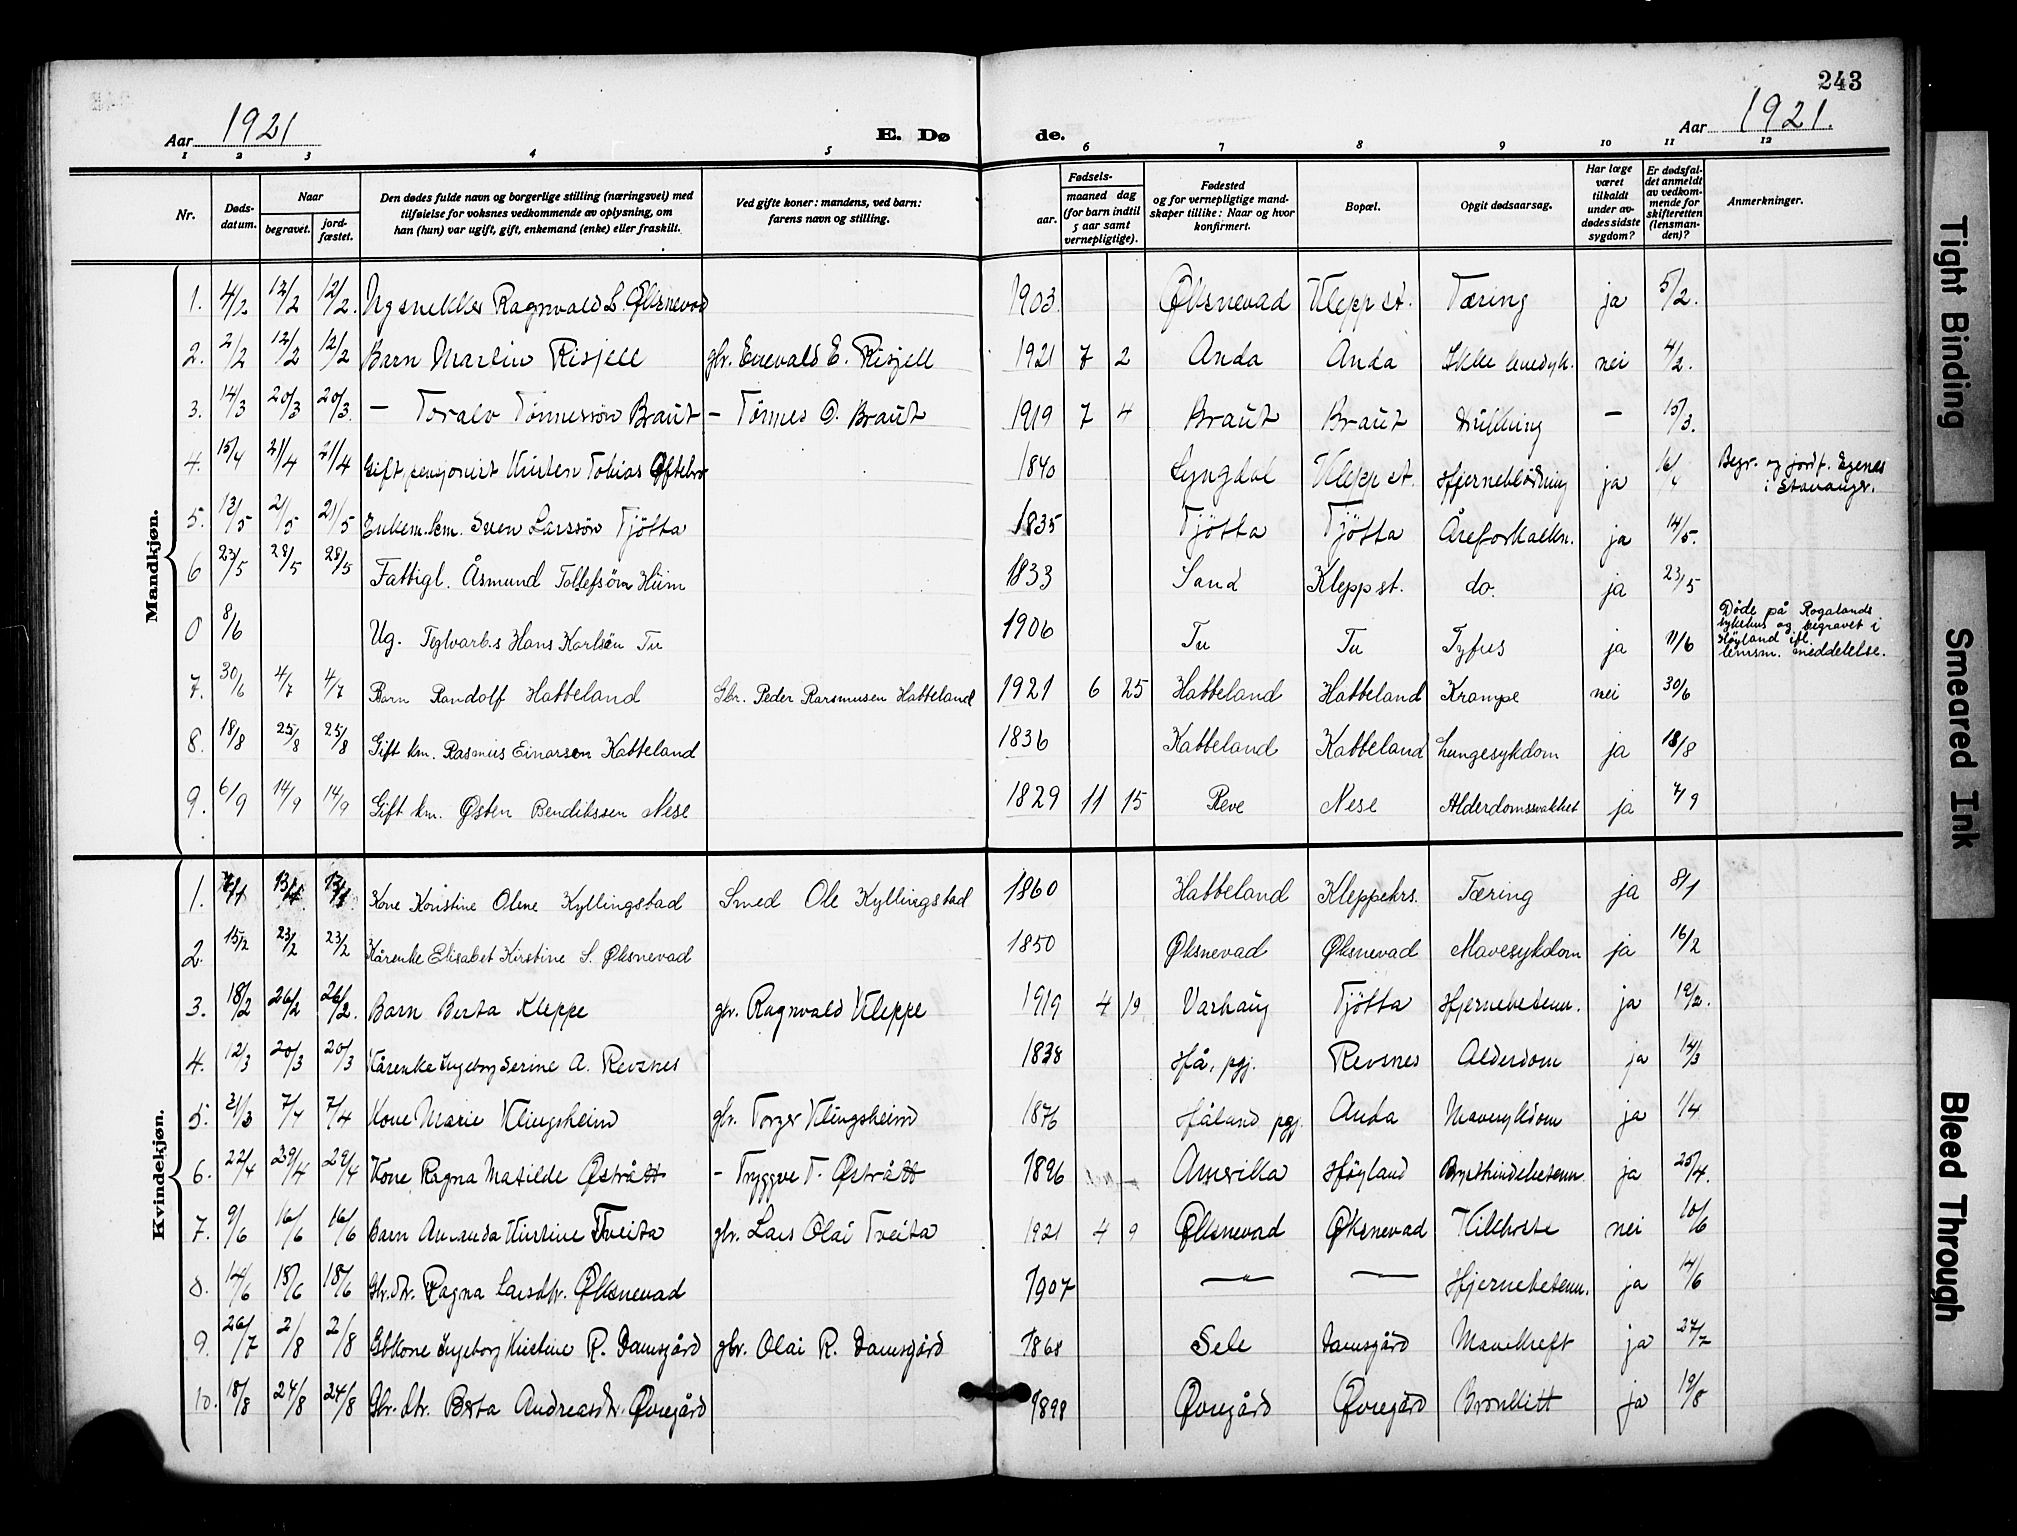 243
Aar 1921
E. Dø
de.
Aar 1921.
1 2 3 4 5 6 7 8 9 10 11 12
Nr.
Døds-
datum.
Naar
begravet.
jord-
fæstet.
Den dødes fulde navn og borgerlige stilling (næringsvei) med
tilføielse for voksnes vedkommende av oplysning, om
han (hun) var ugift, gift, enkemand (enke) eller fraskilt.
Ved gifte koner: mandens, ved barn:
farens navn og stilling.
Fødsels-
aar.
maaned dag
(for barn indtil
5 aar samt
vernepligtige).
Fødested
og for vernepligtige mand-
skaper tillike: Naar og hvor
konfirmert.
Bopæl.
Opgit dødsaarsag.
Har læge
været
tilkaldt
under av-
dødes sidste
sygdom?
Er dødsfal-
det anmeldt
av vedkom-
mende for
skifteretten
(lensman-
den)?
Anmerkninger.
Mandkjøn.
1. 4/2 12/2 12/2. Ug snekker Ragnvald L. Øksnevad 1903 Øksnevad Klepp st. Tæring ja 5/2.
2. 2/2 12/2 12/2 Barn Martin Risjell gbr. Enevald E. Risjell 1921 7 2 Anda Anda Ikke levedyk. nei 4/2.
3. 14/3 20/3 20/3. — Toralv Tønnessøn Braut — Tønnes O. Braut 1919 7 4 Braut Braut — 15/3.
4. 15/4 21/4 21/4 Gift pensjonist Kirsten Tobias Oftebro 1840 Lyngdal Klepp st. Hjerneblødning ja 16/4 Begr. og jordf. Egenes
i Stavanger.
5. 13/5 21/5 21/5 Enkem. km. Sven Larssøn Tjøtta 1835 Tjøtta Tjøtta Åreforkalkn. ja 14/5.
6 23/5 28/5 28/5 Fattigl. Åsmund Tollefsøn Hiim 1833 Sand Klepp st. do. ja 23/5
0 8/6 Ug. Teglvarb.s Hans Karlsen Tu 1906 Tu Tu Tyfus ja 11/6 Døde på Rogalands
sykehus og begravet i
Høyland ifl.
lensm. meddelelse.
7. 30/6 4/7 4/7 Barn Randolf Habbeland Gbr. Peder Rasmusen Habbeland 1921 6 25 Habbeland Habbeland Krampe nei 30/6
8. 18/8 25/8 25/8 Gift km. Rasmus Einarsen Kabbeland 1836 Kabbeland Kabbeland Lungesykdom ja 18/8
9. 6/9 14/9 14/9 Gift km. Østen Bendikssen Nese 1829 11 15 Reve Nese Alderdomssvakhet ja 7/9
Kvindekjøn.
1. 13/1 13/1 Kone Kristine Olene Kyllingstad Smed Ole Kyllingstad 1860 Habbeland Kleppekrs. Tæring ja 8/1
2. 15/2 23/2 23/2 Kårenke Elisabet Kirstine S. Øksnevad 1850 Øksnevad Øksnevad Mavesykdom ja 16/2
3. 18/2 26/2 26/2. Barn Berta Kleppe gbr. Ragnvald Kleppe 1919 4 19 Varhaug Tjøtta Hjernebetenn. ja 19/2.
4. 12/3 20/3 20/3 Kårenke Ingeborg Serine A. Revsnes 1838 Hå, pgj. Revsnes Alderdom ja 14/3
5. 31/3 7/4 7/4 Kone Marie Klingsheim gbr. Torger Klingsheim 1876 Håland pgj. Anda Mavesykdom ja 1/4
6. 22/4 29/4 29/4 Kone Ragna Matilde Østrått — Tryggve T. Østrått 1896 Amerika Høyland Brysthindebetenn. ja 25/4.
7. 9/6 16/6 16/6 Barn Amanda Kirstine Tveita gbr. Lars Olai Tveita 1921 4 9 Øksnevad Øksnevad Kikhoste nei 10/6
8. 14/6 18/6 18/6 Gbr. dr. Ragna Larsdtr. Øksnevad 1907 —"— — Hjernebetenn. ja 14/6
9. 26/7 2/8 2/8 Gbkone Ingeborg Kirstine R. Damsgård gbr. Olai R. Damsgård 1868 Sele Damsgård Mavekreft ja 27/7
10. 18/8 24/8 24/8 Gbr. dtr. Berta Andreasdtr. Øvregård 1898 Øvregård Øvregård Bronkitt ja 19/8
Tight Binding
Smeared Ink
Bleed Through